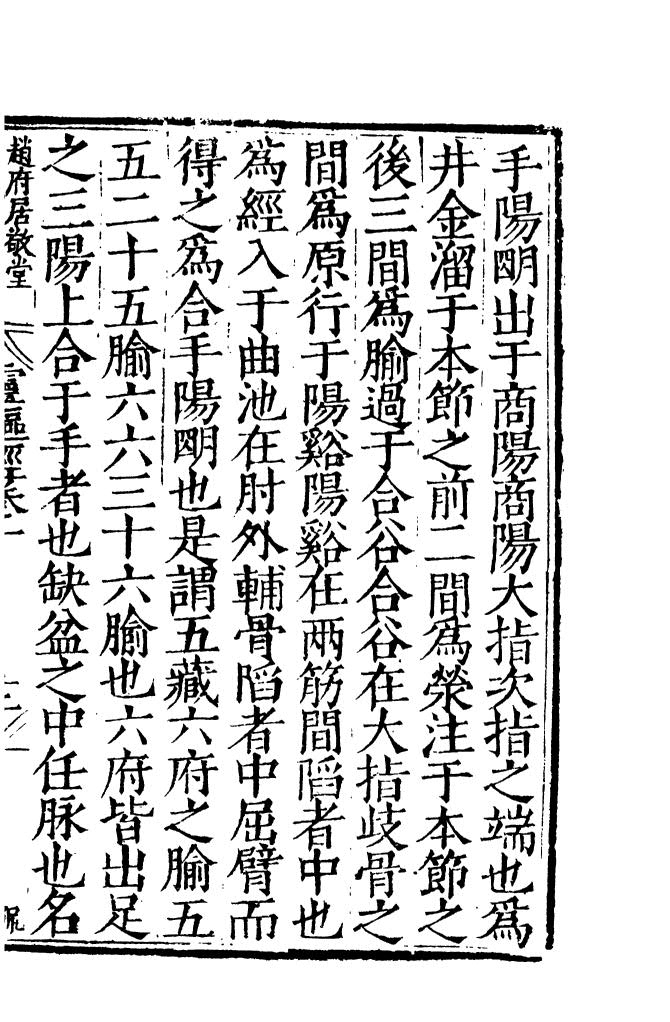 手陽明出于商陽商陽大指次指之端也爲
井金溜于本節之前二間爲滎注于本節之
後三間爲腧過于合谷合谷在大指歧骨之
間爲原行于陽谿陽谿在兩筋間䧟者中也
爲經入于曲池在肘外輔骨䧟者中屈臂而
得之爲合手陽明也是謂五藏六府之腧五
五二十五腧六六三十六腧也六府皆出足
之三陽上合于手者也缺盆之中任脉也名
趙府居敬堂